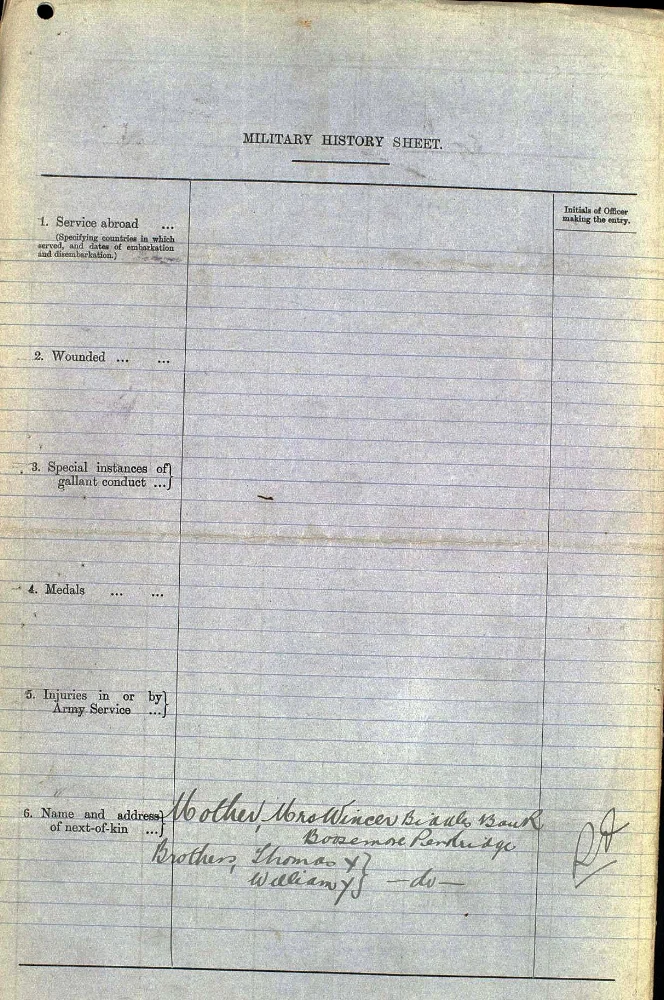 MILITARY HISTORY SHEET.
Initials of Officer
making the entry.
1. Service abroad ...
(Specifying countries in which
served, and dates of embarkation
and disembarkation.)
2. Wounded ... ...
3. Special instances of
gallant conduct ...
4. Medals ... ...
5. Injuries in or by
Army Service ...
6. Name and address
of next-of-kin ...
Mother, Mrs Wincer Bank
Brothers, Thomas
William } —do—